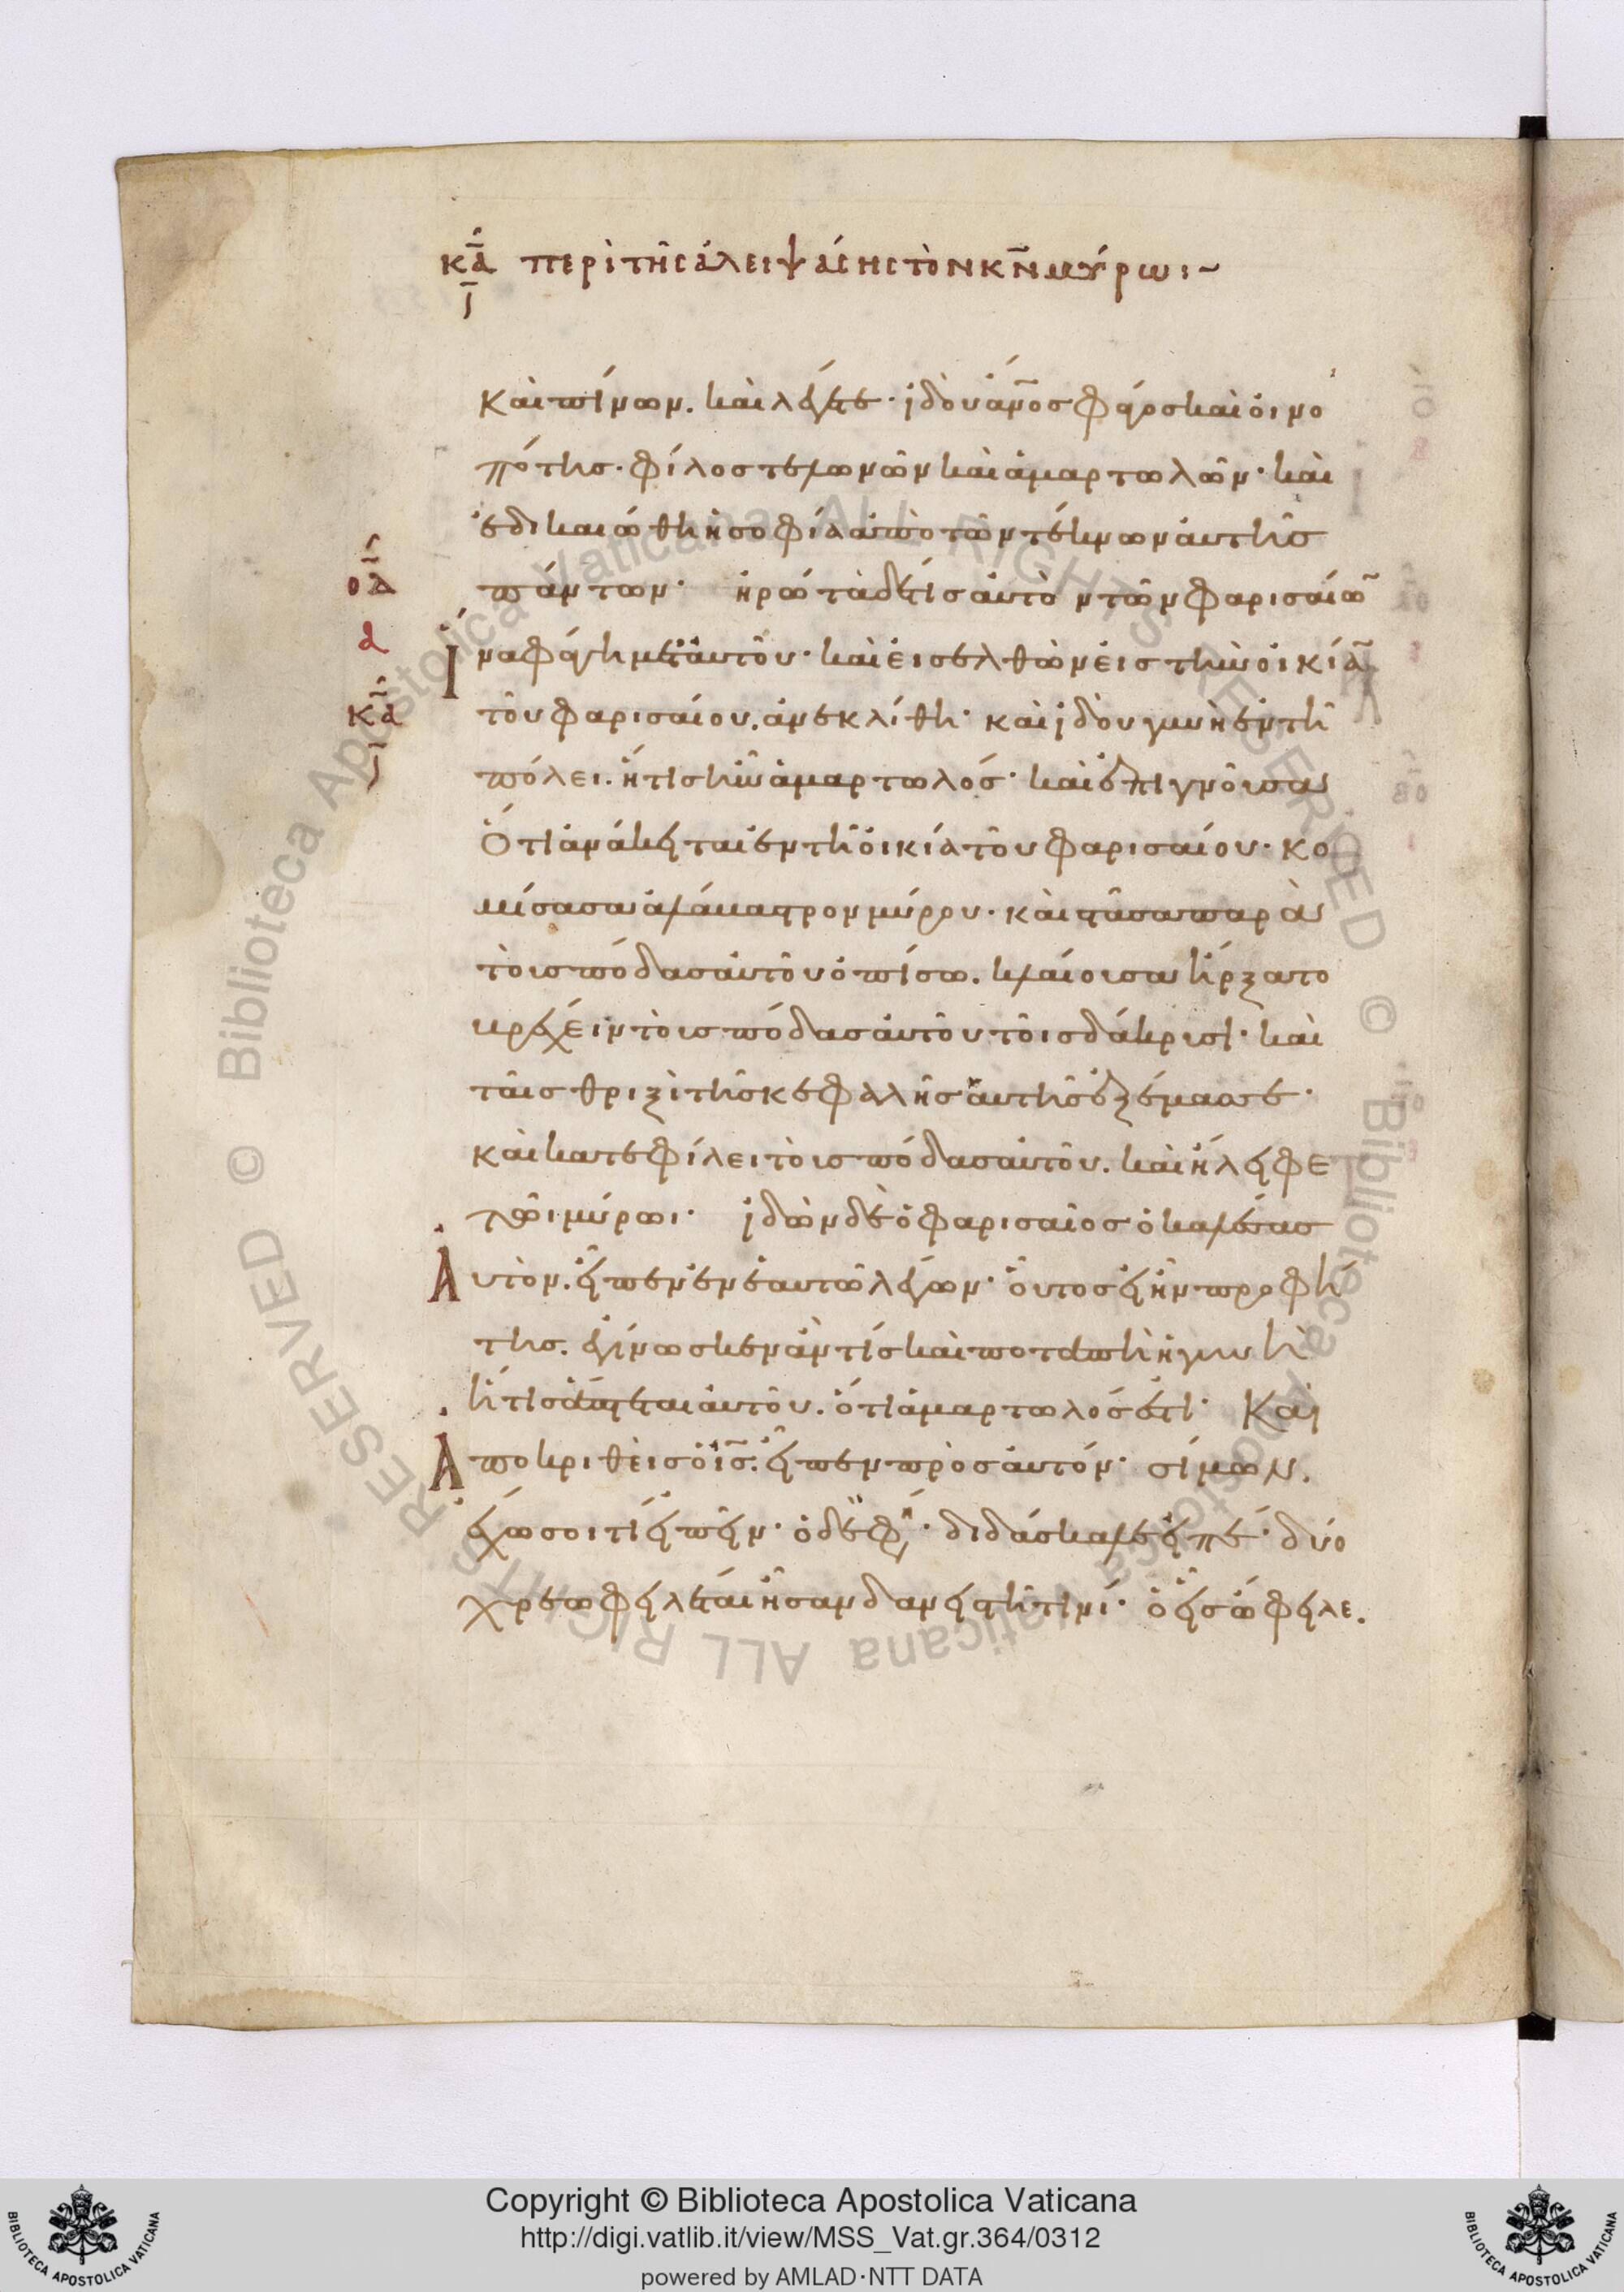 κα περὶ τῆς ἀλειψάσης τὸν κ̅ν̅ μύρωι~
ι
καὶ πίνων. καὶ λέγετε· ἰδοὺ ἄνο̅ς φάγος καὶ οἰνο
πότης· φίλος τελωνῶν καὶ ἁμαρτωλῶν· καὶ
ἐδικαιώθη ἡ σοφία ἀπὸ τῶν τέκνων αὐτῆς
οδ
πάντων· ἠρώτα δέ τίς αὐτὸν τῶν φαρισαίω̅
α
Ἵνα φάγη μετ' αὐτοῦ· καὶ εἰσελθὼν εἰς τὴν οἰκία̅
κα
τοῦ φαρισαίου. ἀνεκλίθη· καὶ ἰδοὺ γυνὴ ἐν τῆ
ι
πόλει. ἥτις ἦν ἁμαρτωλός· καὶ ἐπιγνοῦσα
ὅτι ἀνάκειται ἐν τῆ οἰκία τοῦ φαρισαίου· κο
μίσασα ἀλάβαστρον μύρου· καὶ στᾶσα παρὰ
τοὺς πόδας αὐτοῦ ὀπίσω. κλαίουσα ἤρξατο
βρέχειν τοὺς πόδας αὐτοῦ τοῖς δάκρυσι· καὶ
ταῖς θριξὶ τῆς κεφαλῆς αὐτῆς ἐξέμασσε·
καὶ κατεφίλει τοὺς πόδας αὐτοῦ. καὶ ἤλειφε
τῶι μύρωι· ἰδὼν δὲ ὁ φαρισαῖος ὁ καλέσας
Αὐτὸν. εἶπεν ἐν ἑαυτῶ λέγων· οὗτος εἰ ἦν προφή
της. ἐγίνωσκεν ἂν τίς καὶ ποταπὴ ἡ γυνὴ
ἥτις ἅπτεται αὐτοῦ. ὅτι ἁμαρτωλός ἐστι· Καὶ
Ἀποκριθεὶς ὁ ι̅ς̅. εἶπεν πρὸς αὐτόν· σίμων.
ἔχω σοι τί εἰπεῖν· ὁ δὲ φη· διδάσκαλε εἰπέ· δύο
χρεωφειλέται ἦσαν δανειστῆ τινί· ὁ εἷς ὤφειλε.
Copyright © Biblioteca Apostolica Vaticana
http://digi.vatlib.it/view/MSS_Vat.gr.364/0312
powered by AMLAD·NTT DATA
BIBLIOTECA APOSTOLICA VATICANA
BIBLIOTECA APOSTOLICA VATICANA
© Biblioteca Apostolica Vaticana ALL RIGHTS RESERVED © Biblioteca Apostolica Vaticana ALL RIGHTS RESERVED